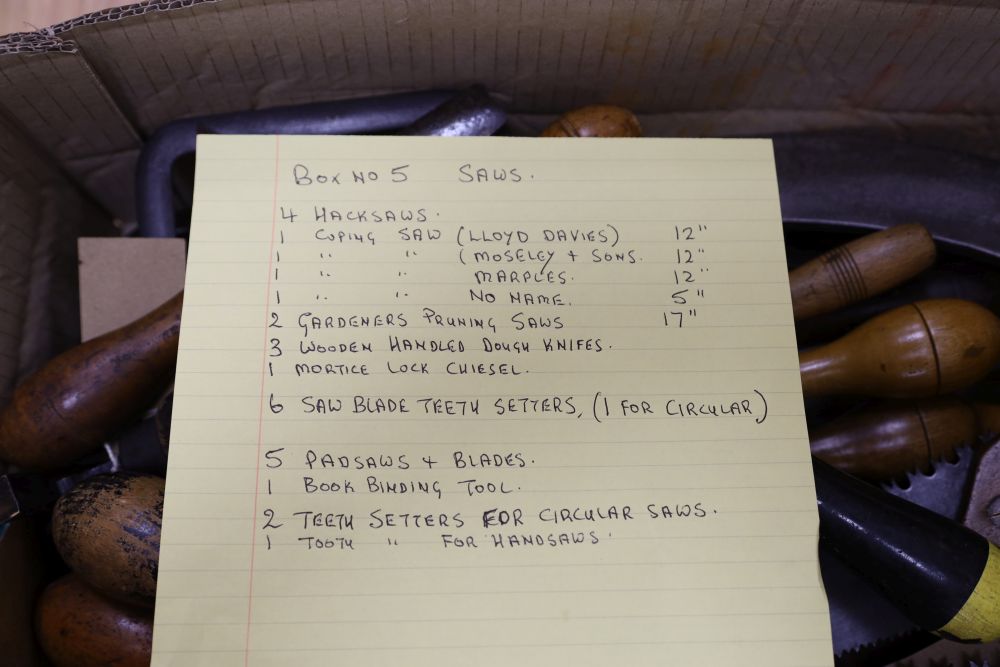 Box No 5 SAWS.
4 HACKSAWS.
1 COPING SAW (LLOYD DAVIES) 12"
1 " " (MOSELEY + SONS. 12"
1 " " MARPLES. 12"
1 " " NO NAME. 5"
2 GARDENERS PRUNING SAWS 17"
3 WOODEN HANDLED DOUGH KNIFES.
1 MORTICE LOCK CHIESEL.
6 SAW BLADE TEETH SETTERS, (1 FOR CIRCULAR)
5 PADSAWS + BLADES.
1 BOOK BINDING TOOL.
2 TEETH SETTERS FOR CIRCULAR SAWS.
1 TOOTH " FOR HANDSAWS.